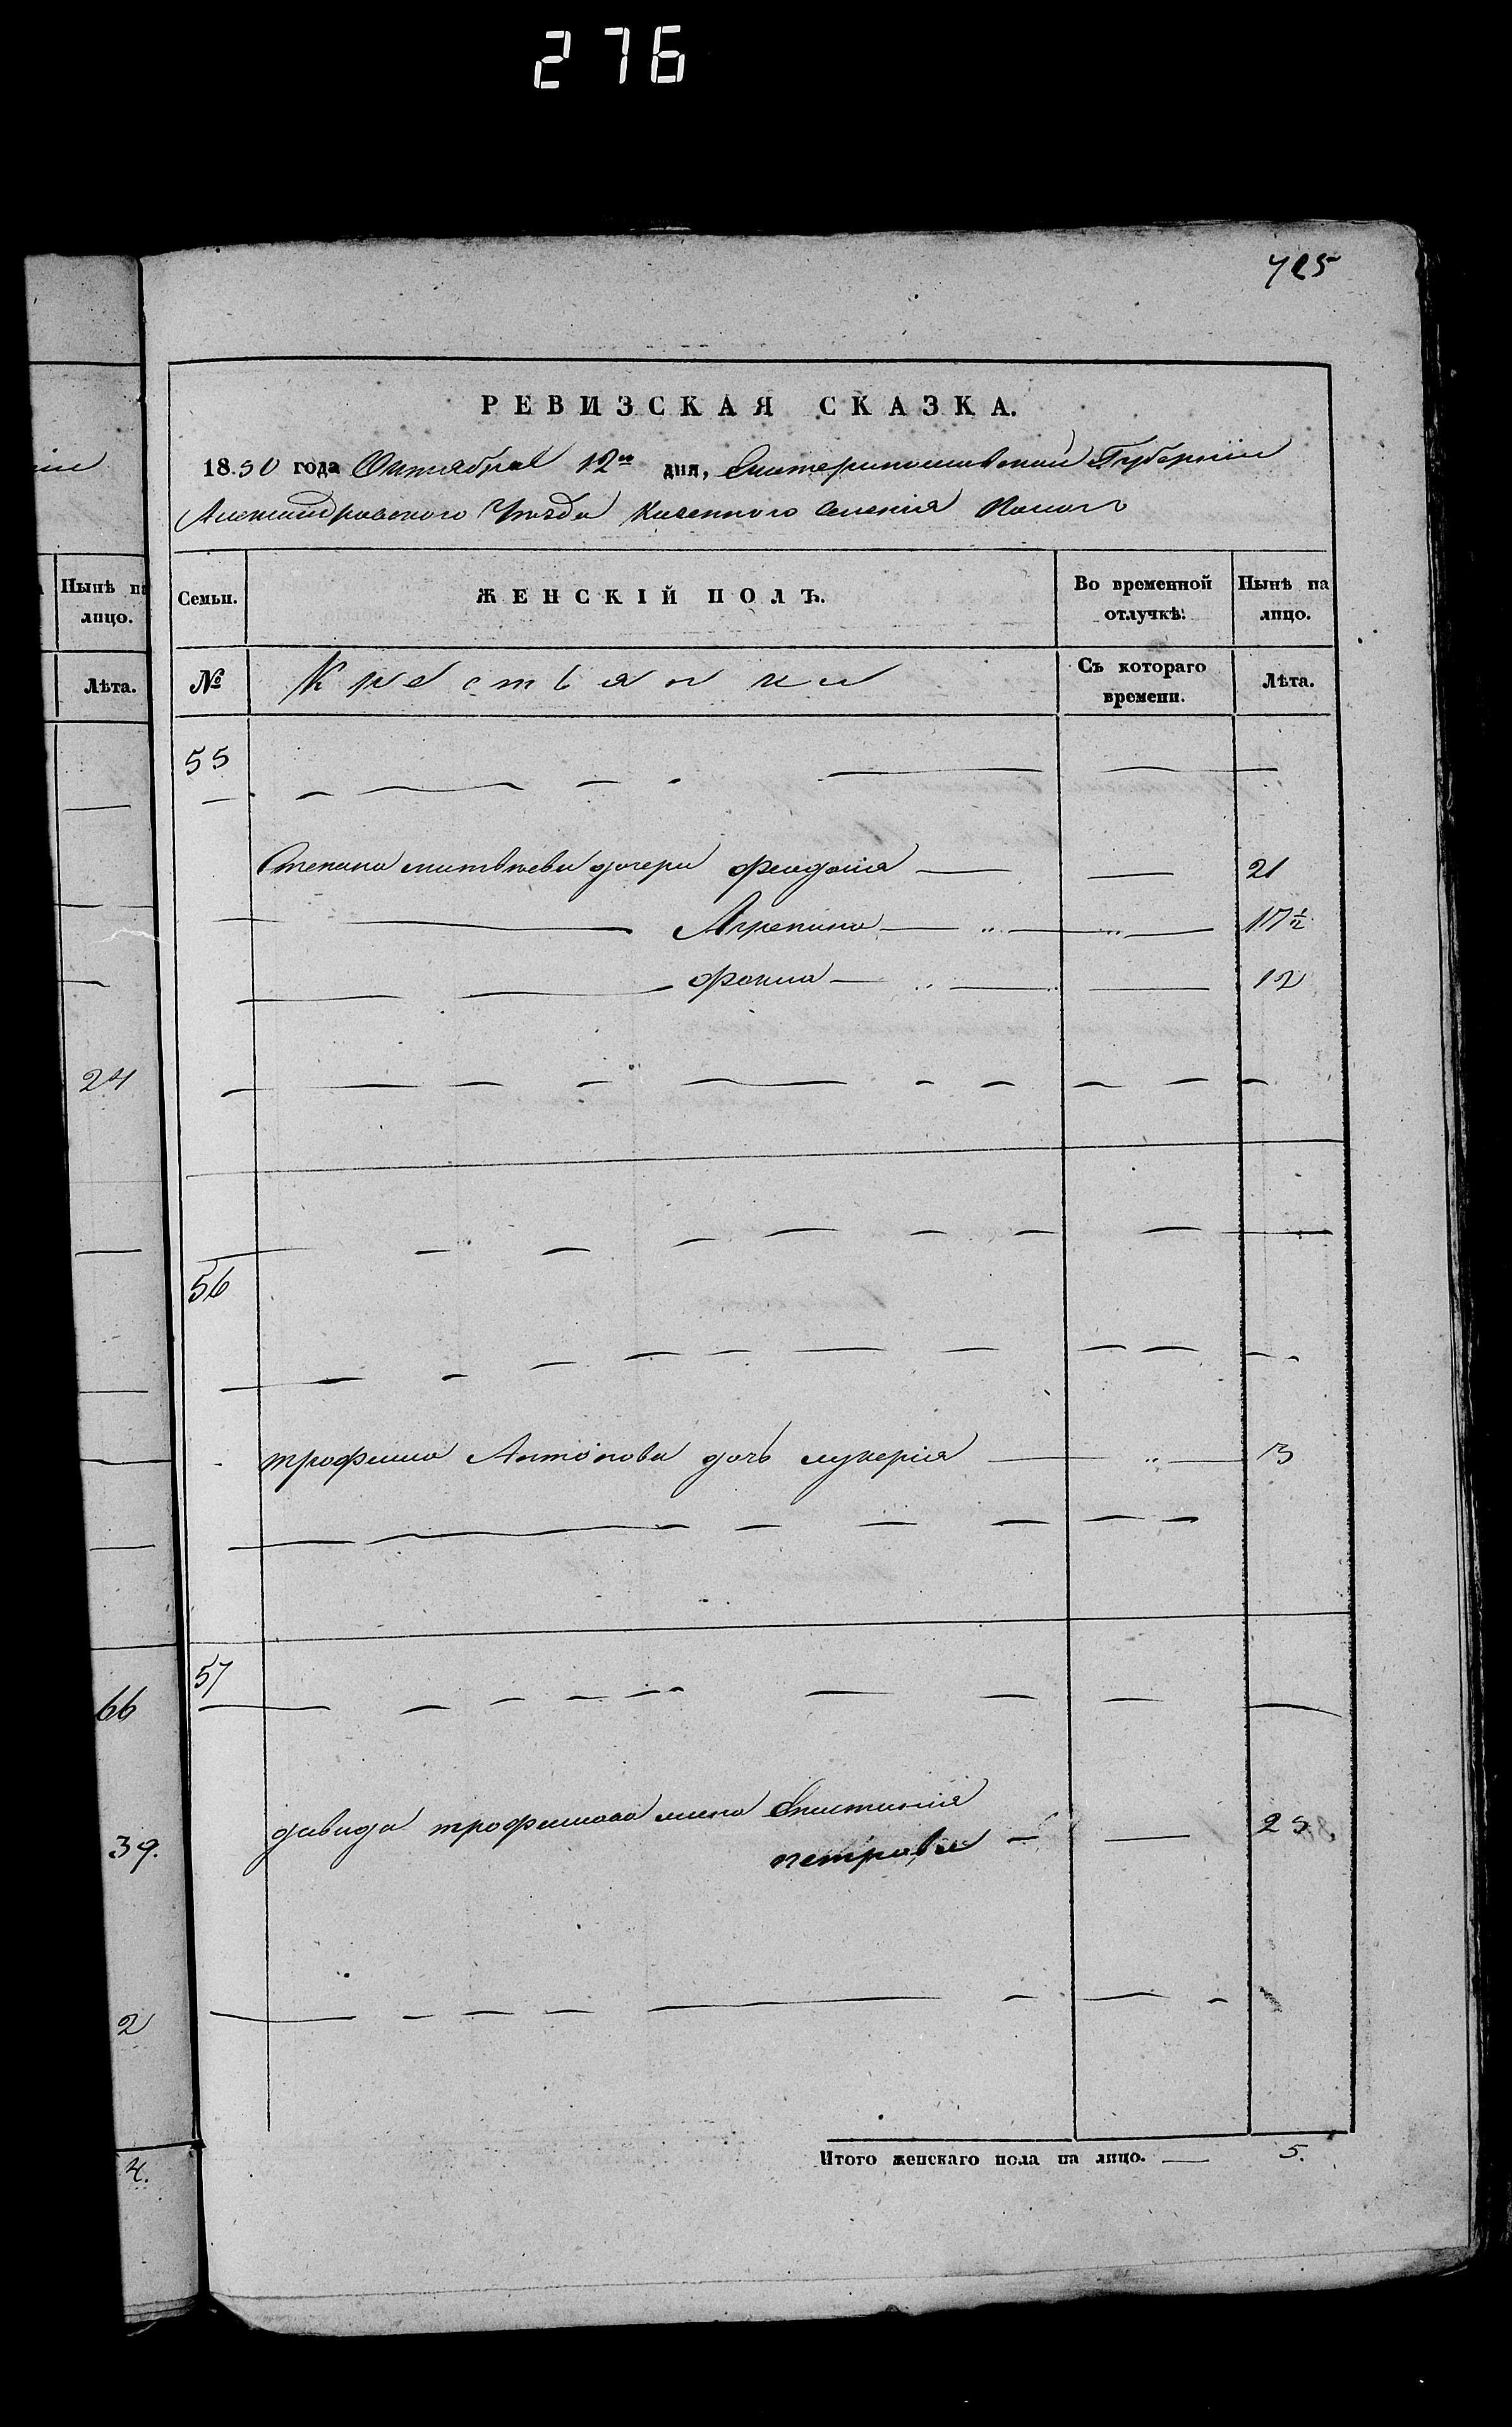 276
725
РЕВИЗСКАЯ СКАЗКА.
1850 года Октября 12го дня, Екатеринославской Губернии
Александровского Уезда Казенного Селения
Нынѣ на лицо.
Семьи. ЖЕНСКІЙ ПОЛЪ. Во временной отлучкѣ. Нынѣ на лицо.
Лѣта.
№ Крестьянки Съ котораго времени. Лѣта.
55
Степана Матвѣева дочери Феодосия 21
Агрепина 17½
Фокла 12
24
56
трофима Антонова дочь лукерия 13
57
66
давида трофимова жена
петрова 25
39.
2
Итого женскаго пола на лицо. 5.
4.